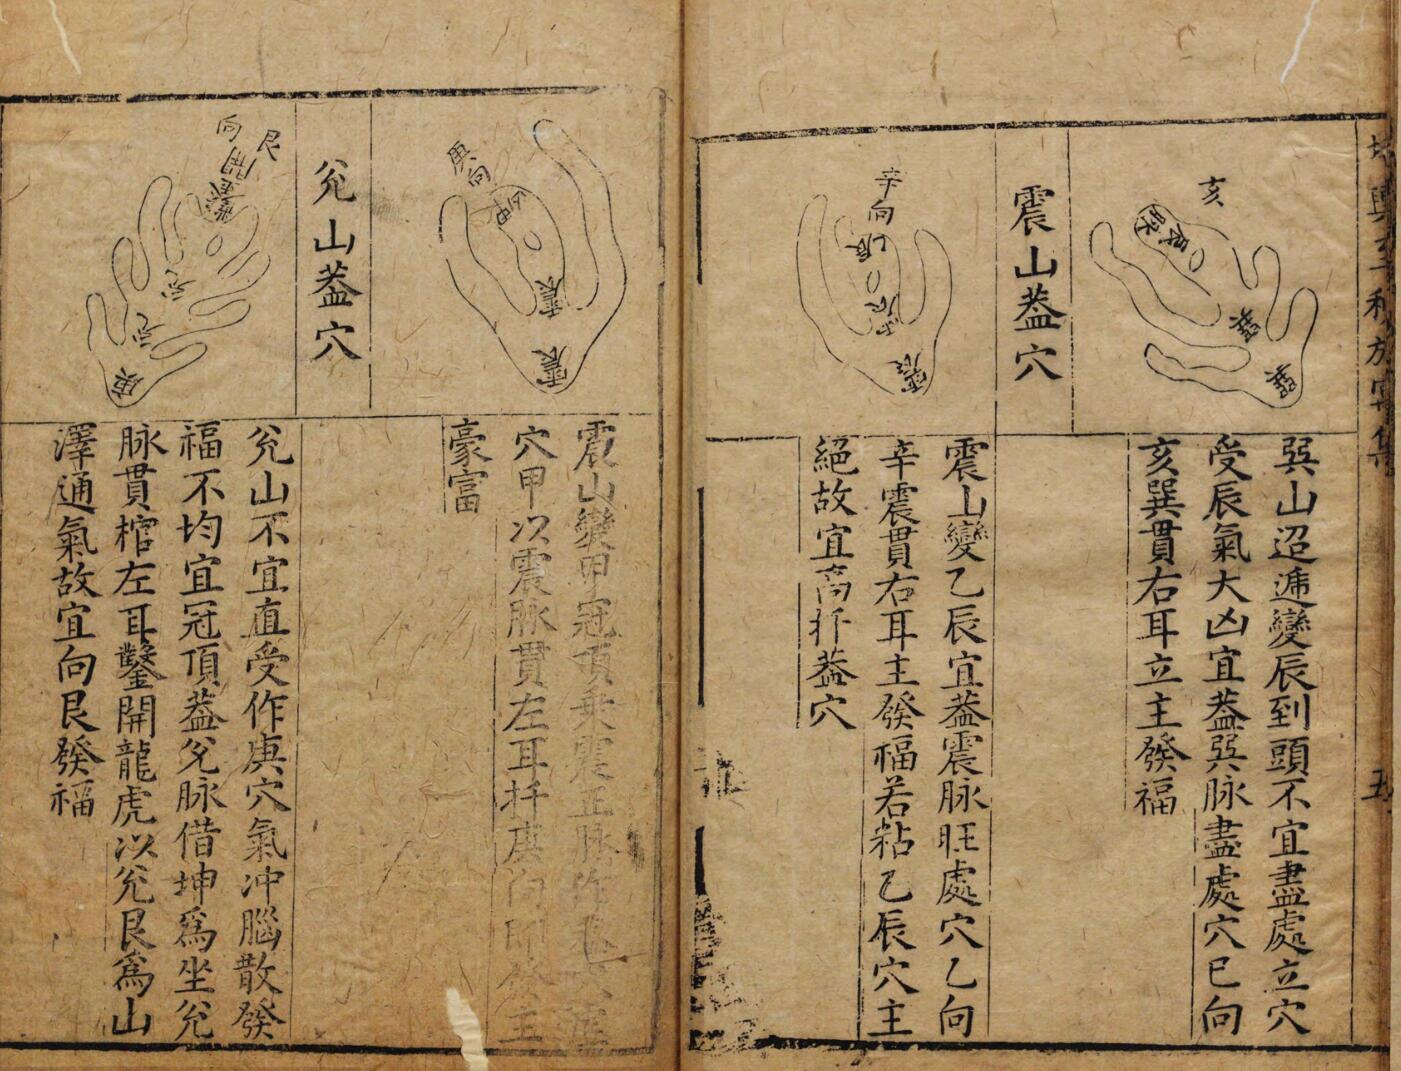 亥
辰
巽
巽
巽山迢遞變辰到頭不宜盡處立穴
受辰氣大凶宜葢巽脉盡處穴巳向
亥巽貫右耳立主發福
震山葢穴
辛向
乙辰
震
震山變乙辰宜葢震脉旺處穴乙向
辛震貫右耳主發福若粘乙辰穴主
絕故宜高扦葢穴
庚向
甲
震
震
震山變甲冠頂乘震正脉作
穴甲以震脉貫左耳扦庚向
豪富
兊山葢穴
艮
向
兊
兊
庚
兊山不宜直受作庚穴氣冲腦散發
福不均宜冠頂葢兊脉借坤爲坐兊
脉貫棺左耳鑿開龍虎以兊艮爲山
澤通氣故宜向艮發福